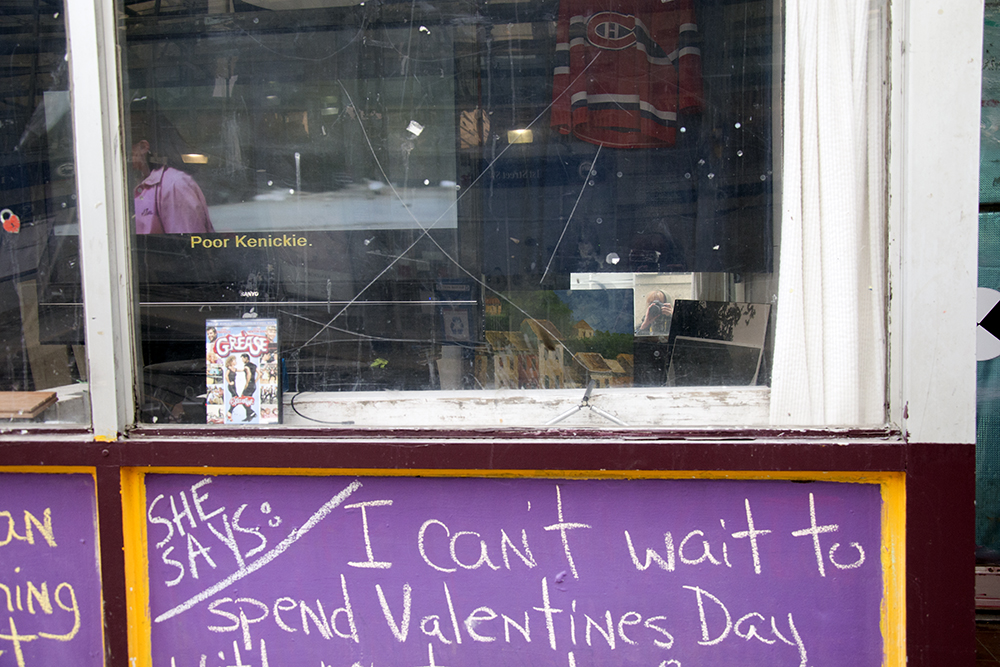 Poor Kenickie.
SANYO
GREASE
SHE
SAYS:
I can't wait to
spend Valentines Day
an
ning